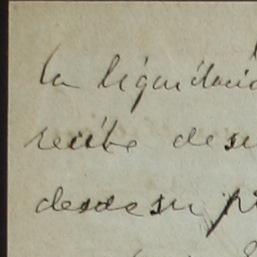 la liquidació
recibe de su
desde su p